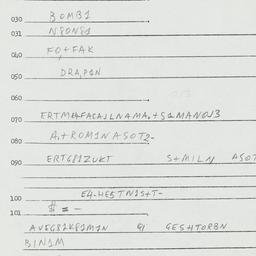 030 BOMB1
031 N8ON81
040 FO,+FAK
050 DRA,P1N
060
070 ERTMHFACA1LNAMA,+S1MANOJ3
080 A,+ROM1NASOT2-
090 ERTG81ZUKT S+MILN ASOT
100 E4-HE5TN1S+T-
101 $ = -
AVEG81K81M1N G1 GESHTORBN
B1N1M